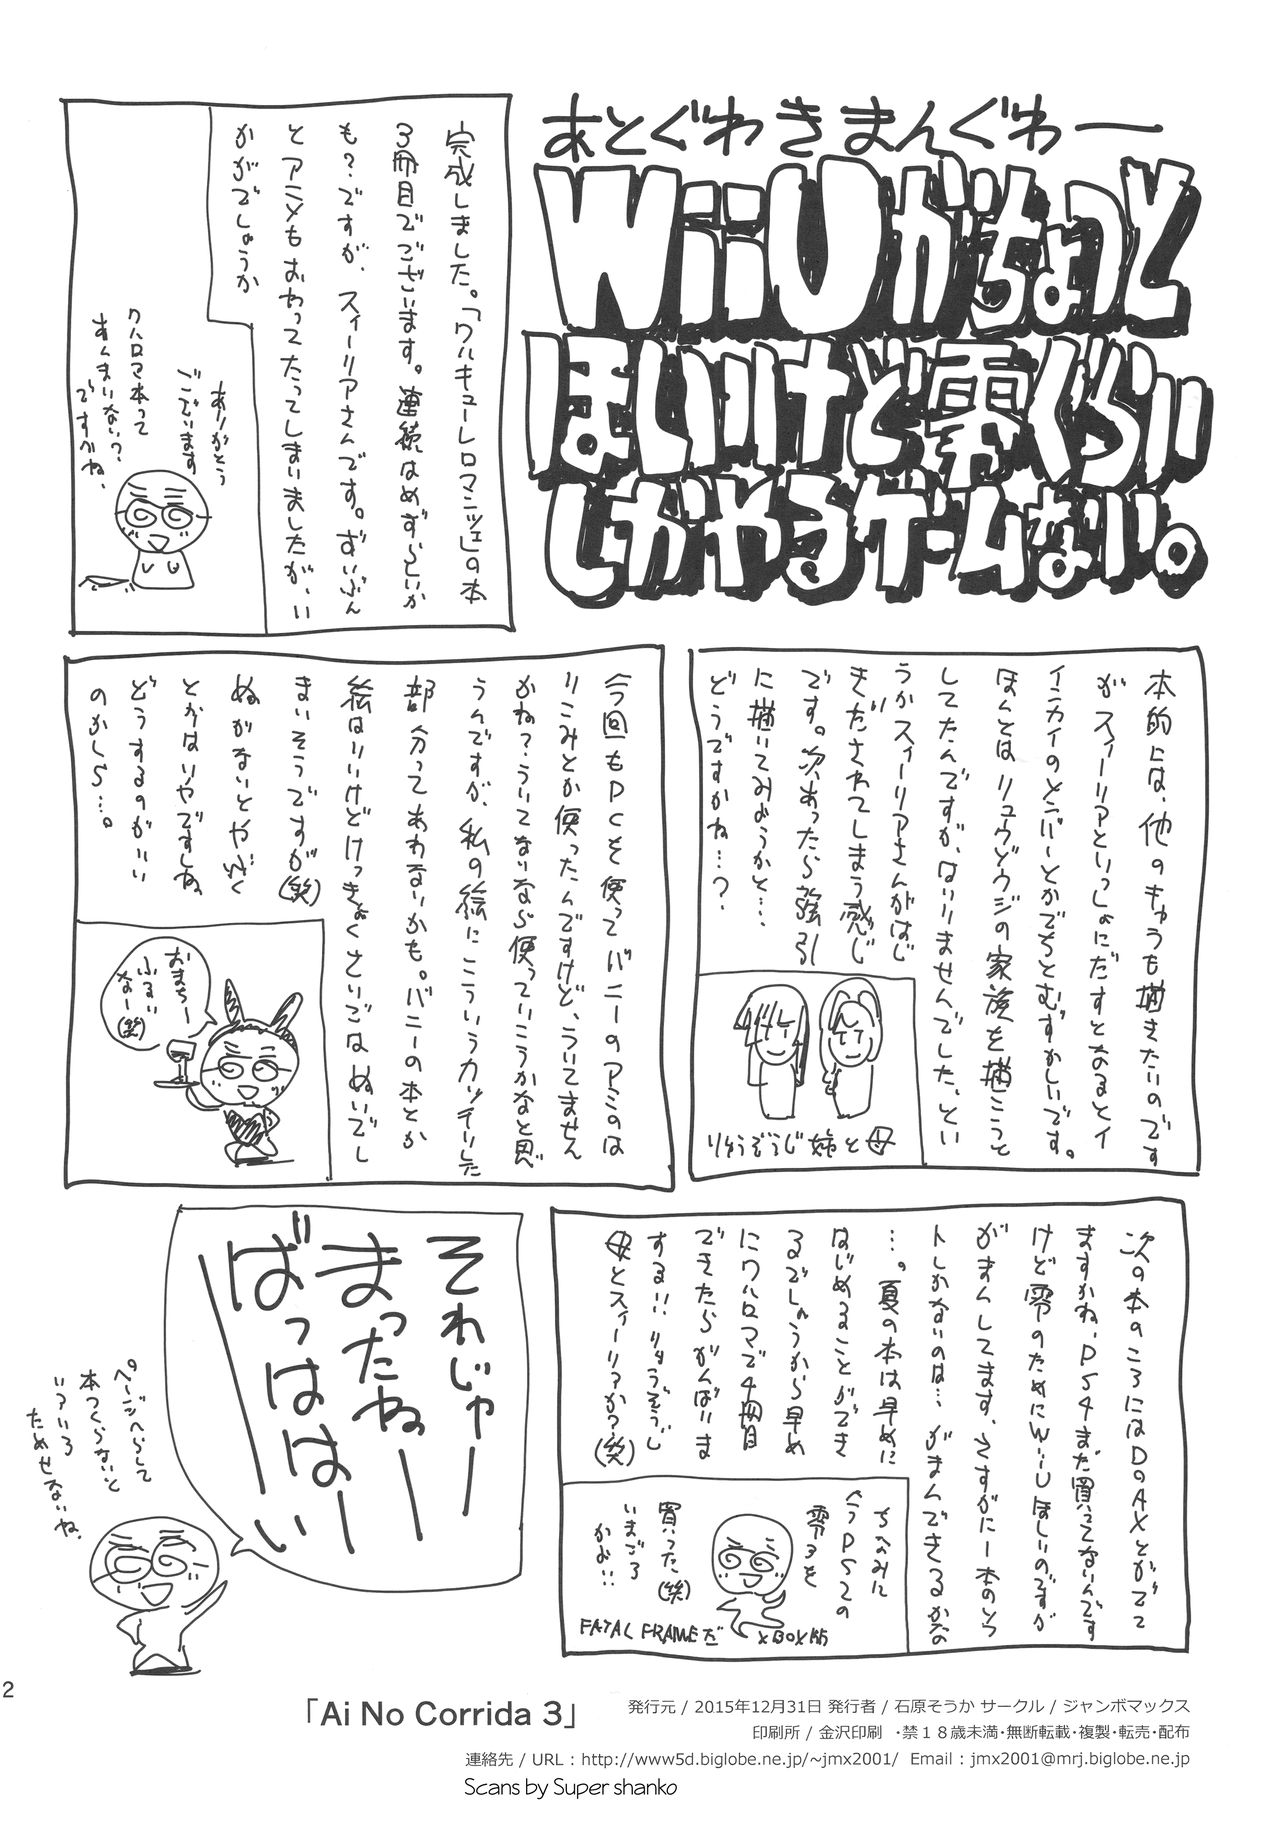 あとぐわきまんぐわー
WiiUがちょっと
ほしいけど零ぐらい
しかやるゲームない。
完成しました。「ワルキューレロマンツェ」の本
3冊目でございます。連続はめずらしいか
も？ですが、スィーリアさんです。ずいぶん
とアニメもおわってたってしまいましたが、い
かがでしょうか
ありがとう
ございます
ワルロマ本って
あんまりない？
ですかね、
本的には、他のきゃらも描きたいのです
がスィーリアといっしょにだすとなるとイ
インカイのメンバーとかでちとむずかしいです。
ほんとはリュウゾウジの家族を描こうと
してたんですが、はいりませんでした、とい
うかスィーリアさんがはじ
きだされてしまう感じ
です。次あったら強引
に描いてみようかと…
どうですかね…？
りゅうぞうじ姉と母
今回もPCを使ってバニーのアミのは
りこみとか使ったんですけど、ういてません
かね？ういてないなら使っていこうかなと思
うんですが、私の絵にこういうカッチリした
部分ってあわないかも。バニーの本とか
絵はいいけどけっきょくさいごはぬいでし
まいそうですが(笑)
ぬがないとやぶく
とかはいやですしね
どうするのがいい
のかしら…。
おまちー
ふるい
なー(笑)
次の本のころにはDOAXとかでて
ますかね、PS4まだ買ってないんです
けど零のためにWiiUほしいのですが
がまんしてます、さすがに一本のソフ
トしかないのは…がまんできるかな
…。夏の本は早めに
はじめることができ
るでしょうから早め
にワルロマで4冊目
できたらがんばりま
する！！りゅうぞうじ
母とスィーリアか？(笑)
ちなみに
今PS2の
零3を
買った(笑)
いまごろ
かよ！！
FATAL FRAMEだ
XBOX版
それじゃー
まったねー
ばっはは〜い
ページへらして
本つくらないと
いろいろ
ためせないね、
2
「Ai No Corrida 3」
発行元 / 2015年12月31日 発行者 / 石原そうか サークル / ジャンボマックス
印刷所 / 金沢印刷 ・禁１８歳未満・無断転載・複製・転売・配布
連絡先 / URL : http://www5d.biglobe.ne.jp/~jmx2001/ Email : jmx2001@mrj.biglobe.ne.jp
Scans by Super shanko